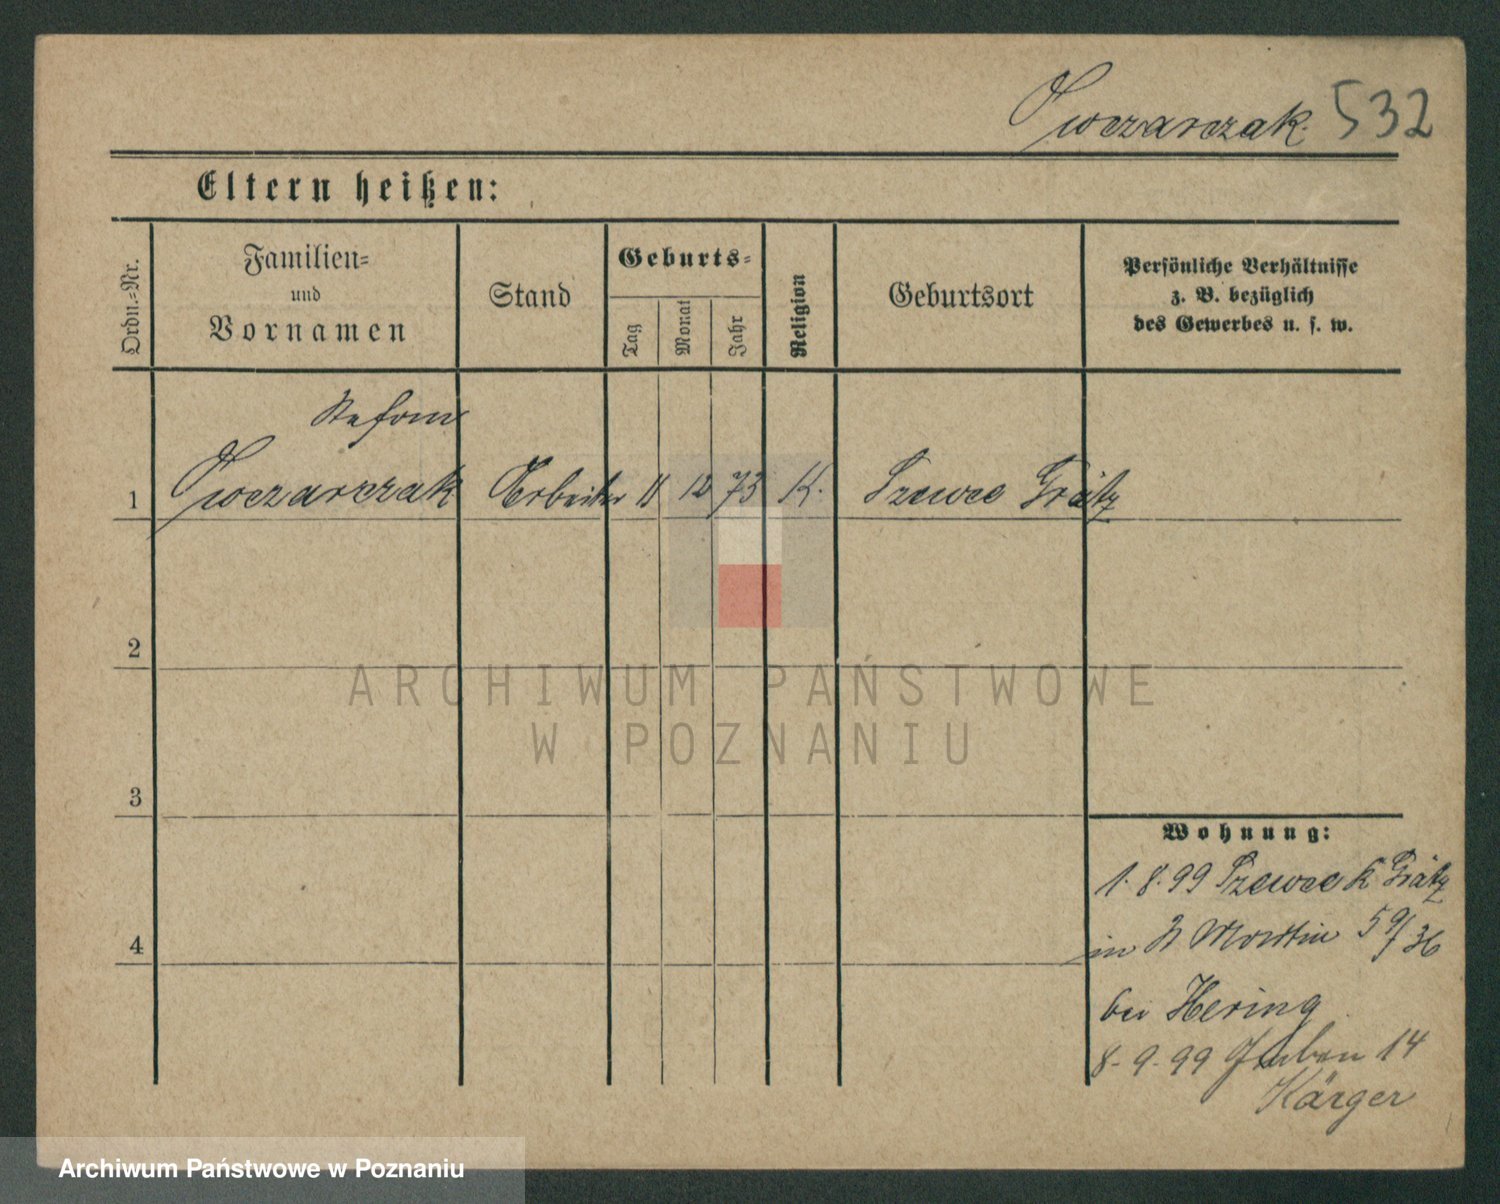 Owczarczak. 532
Eltern heißen:
Ordn.=Nr.
Familien=
und
Vornamen
Stand
Geburts=
Tag
Monat
Jahr
Religion
Geburtsort
Persönliche Verhältnisse
z. B. bezüglich
des Gewerbes u. s. w.
Stefan
1 Owczarczak Arbeiter 11 12 73 K. Szewce Grätz
2
ARCHIWUM PAŃSTWOWE
W POZNANIU
3
Wohnung:
1.8.99 Szewce K Grätz
in St Martin 59/36
4
bei Hering
8.9.99 Gruben 14
Kärger
Archiwum Państwowe w Poznaniu